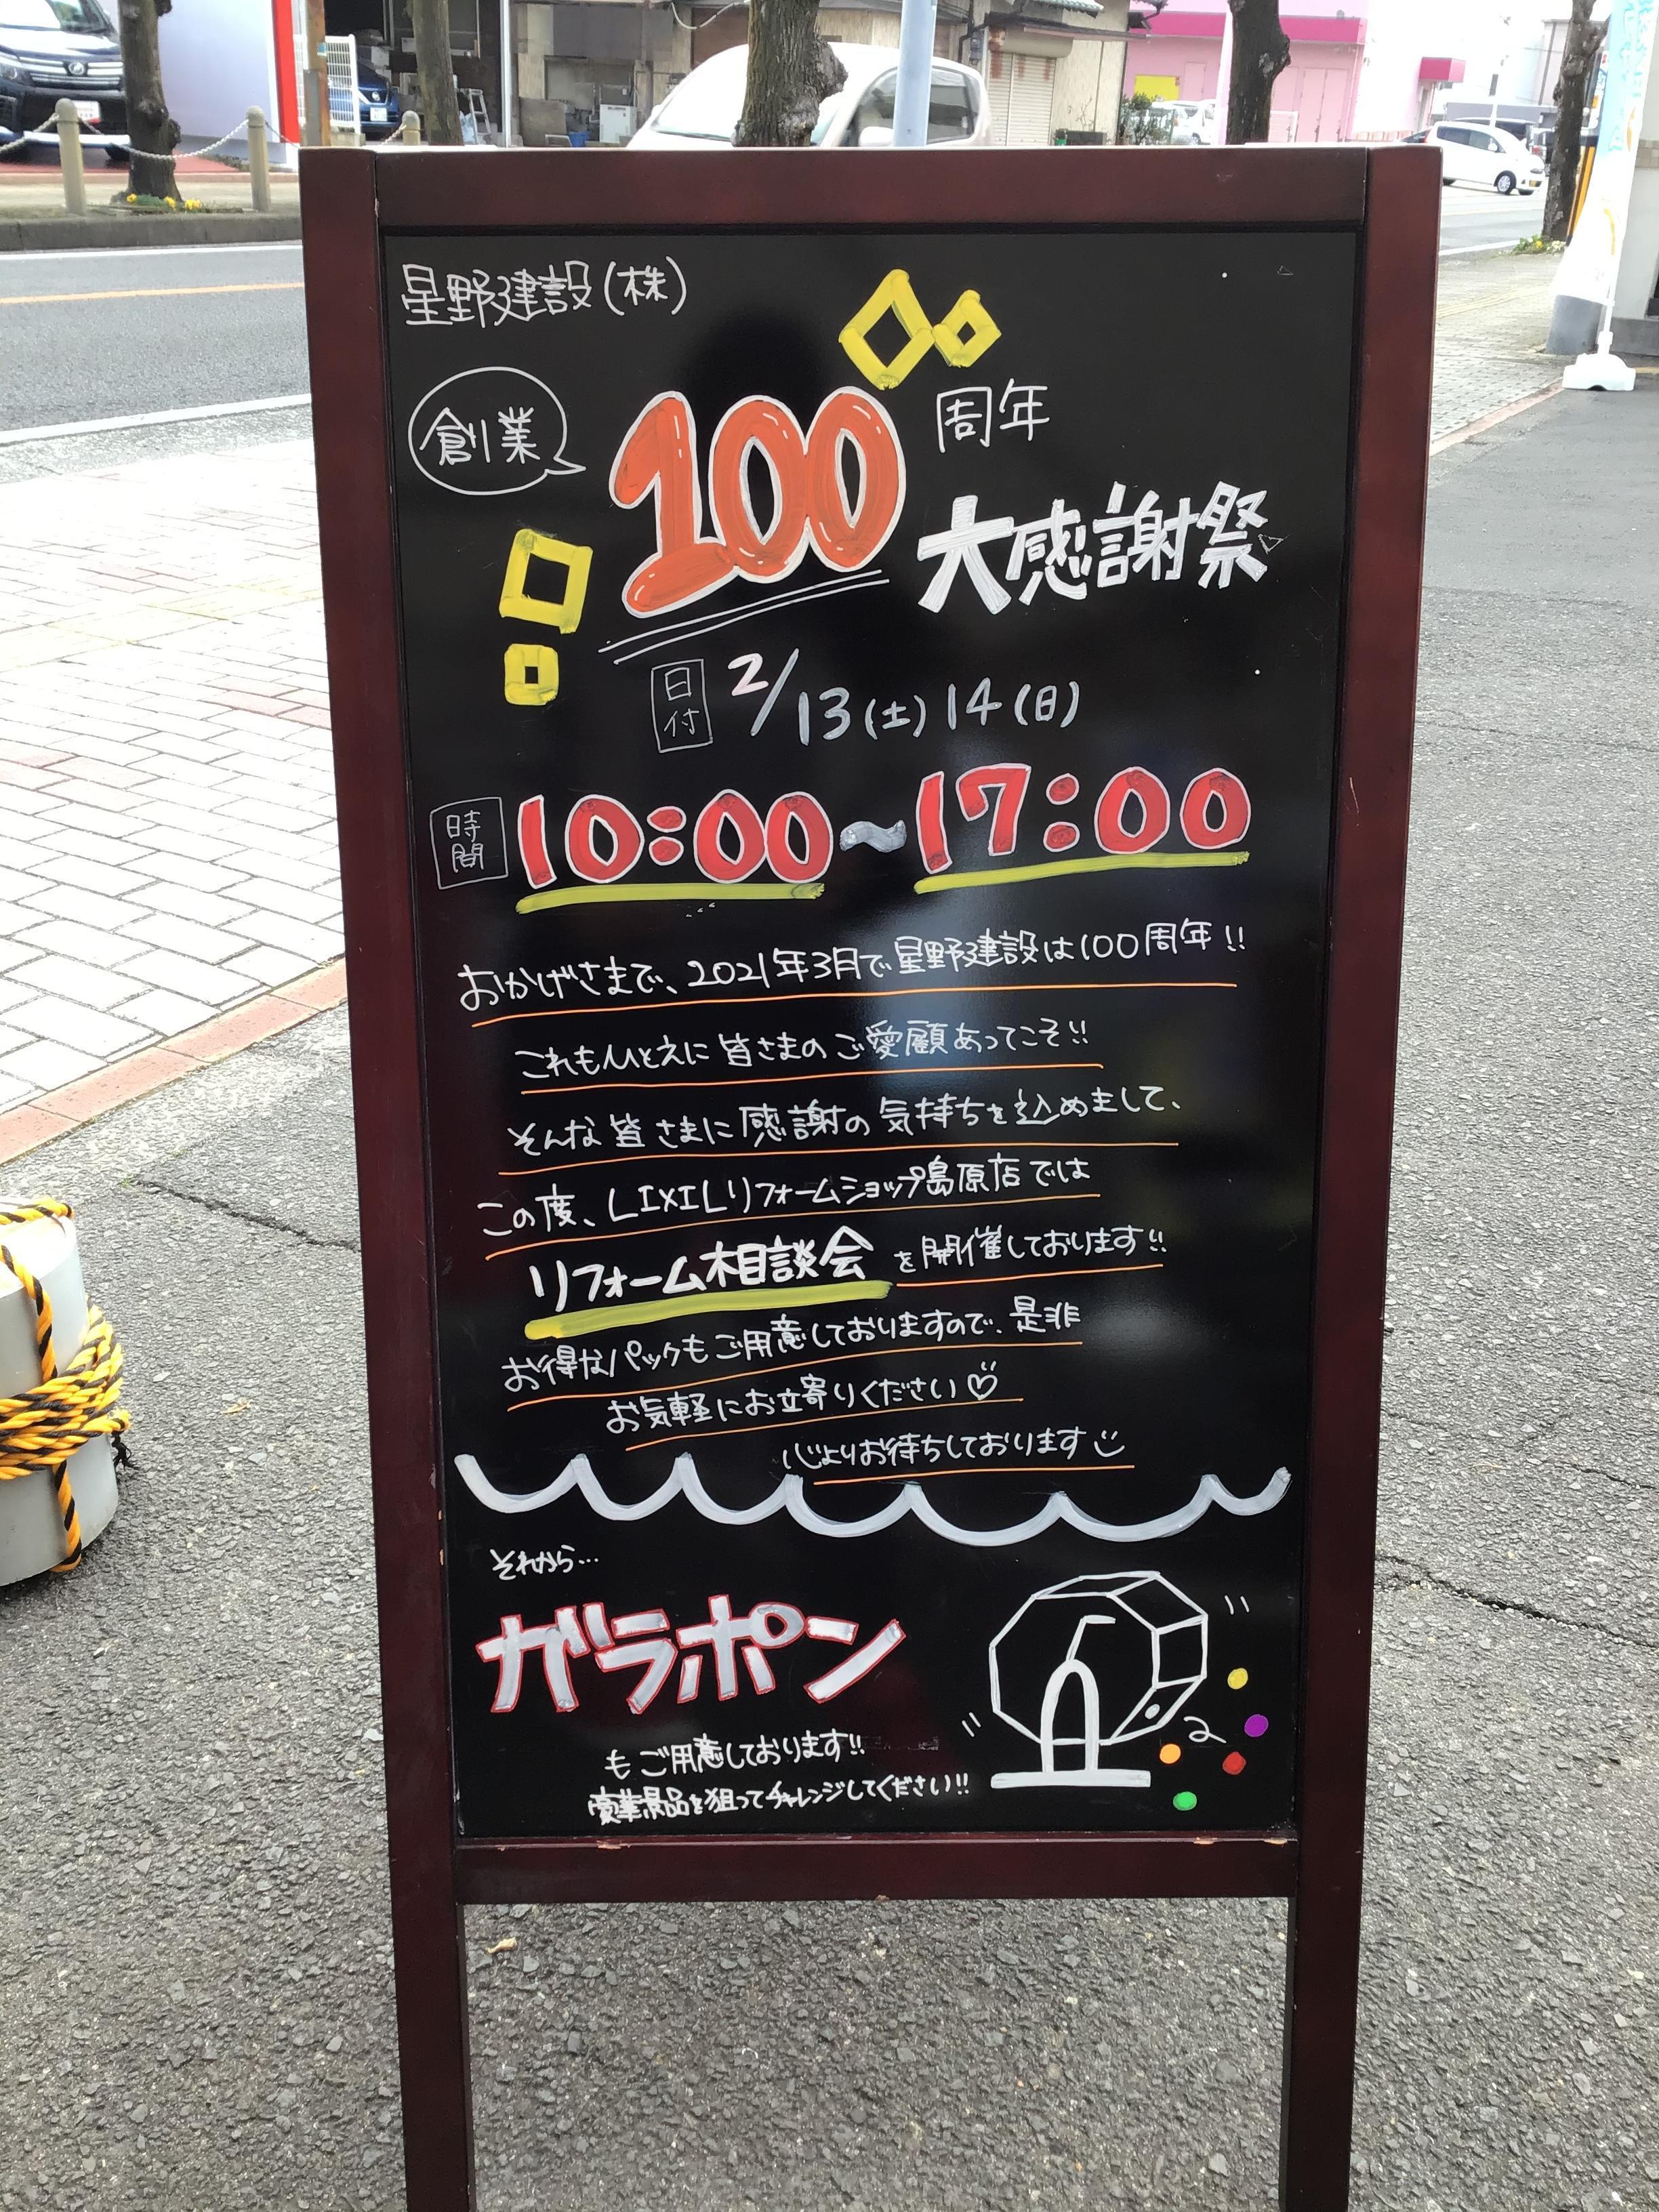 星野建設(株)
創業
100周年
大感謝祭
日付 2/13(土)14(日)
時間 10:00~17:00
おかげさまで、2021年3月で星野建設は100周年!!
これもひとえに皆さまのご愛顧あってこそ!!
そんな皆さまに感謝の気持ちを込めまして、
この度、LIXILリフォームショップ島原店では
リフォーム相談会を開催しております!!
お得なパックもご用意しておりますので、是非
お気軽にお立寄りください♡
心よりお待ちしております
それから…
ガラポン
もご用意しております!!
豪華景品を狙ってチャレンジしてください!!